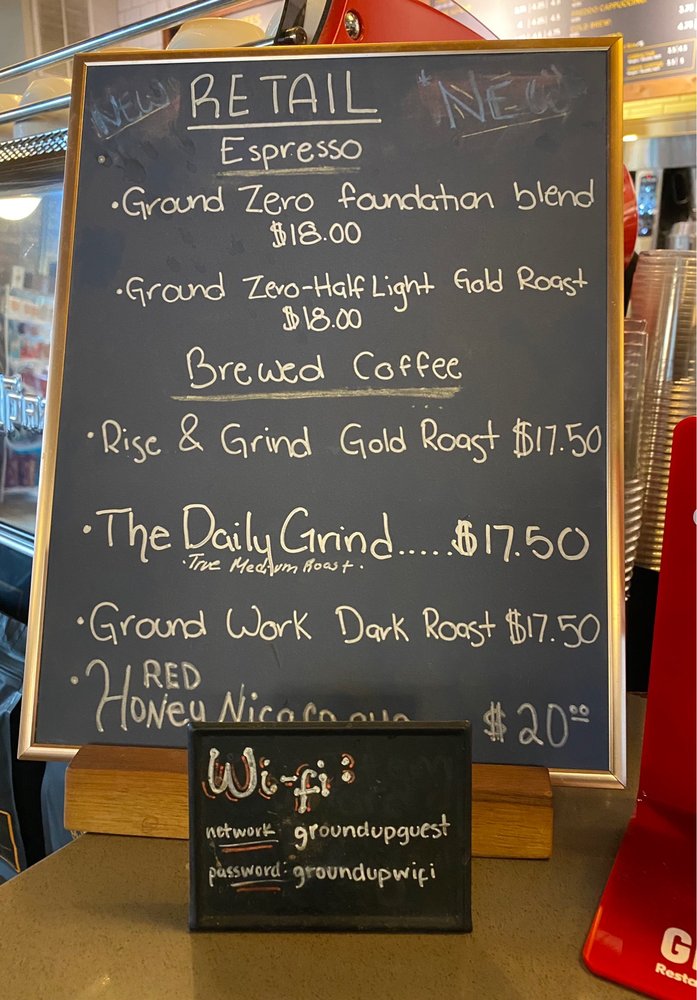 NEW RETAIL NEW
Espresso
·Ground Zero foundation blend
$18.00
·Ground Zero-Half Light Gold Roast
$18.00
Brewed Coffee
·Rise & Grind Gold Roast $17.50
·The Daily Grind.....$17.50
·True Medium Roast.
·Ground Work Dark Roast $17.50
·RED
Honey $20⁰⁰
Wi-fi:
network: groundupguest
password: groundupwifi